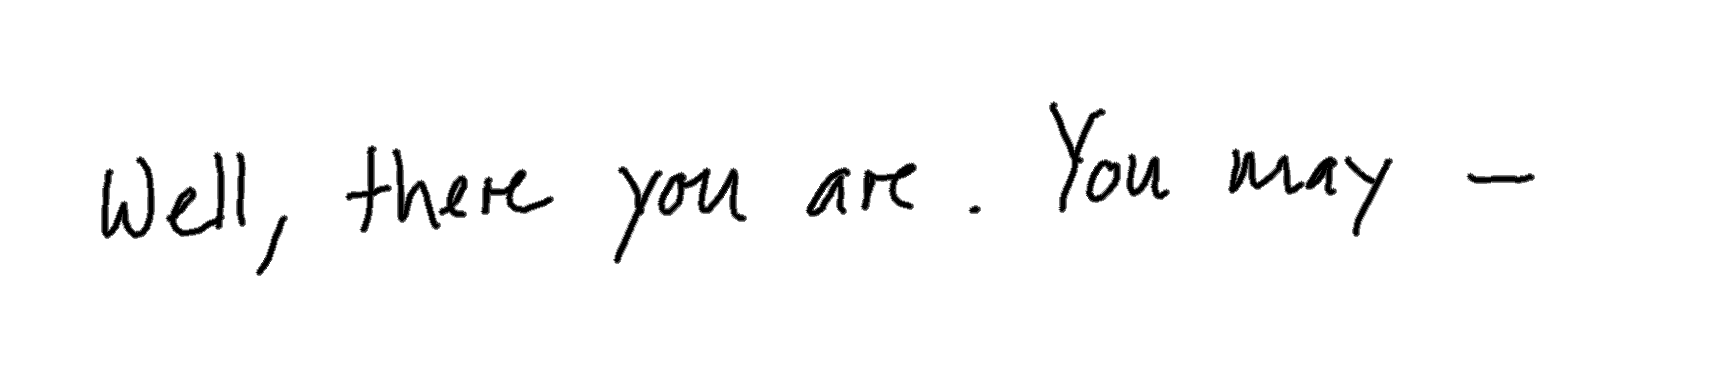 Well, there you are. You may -